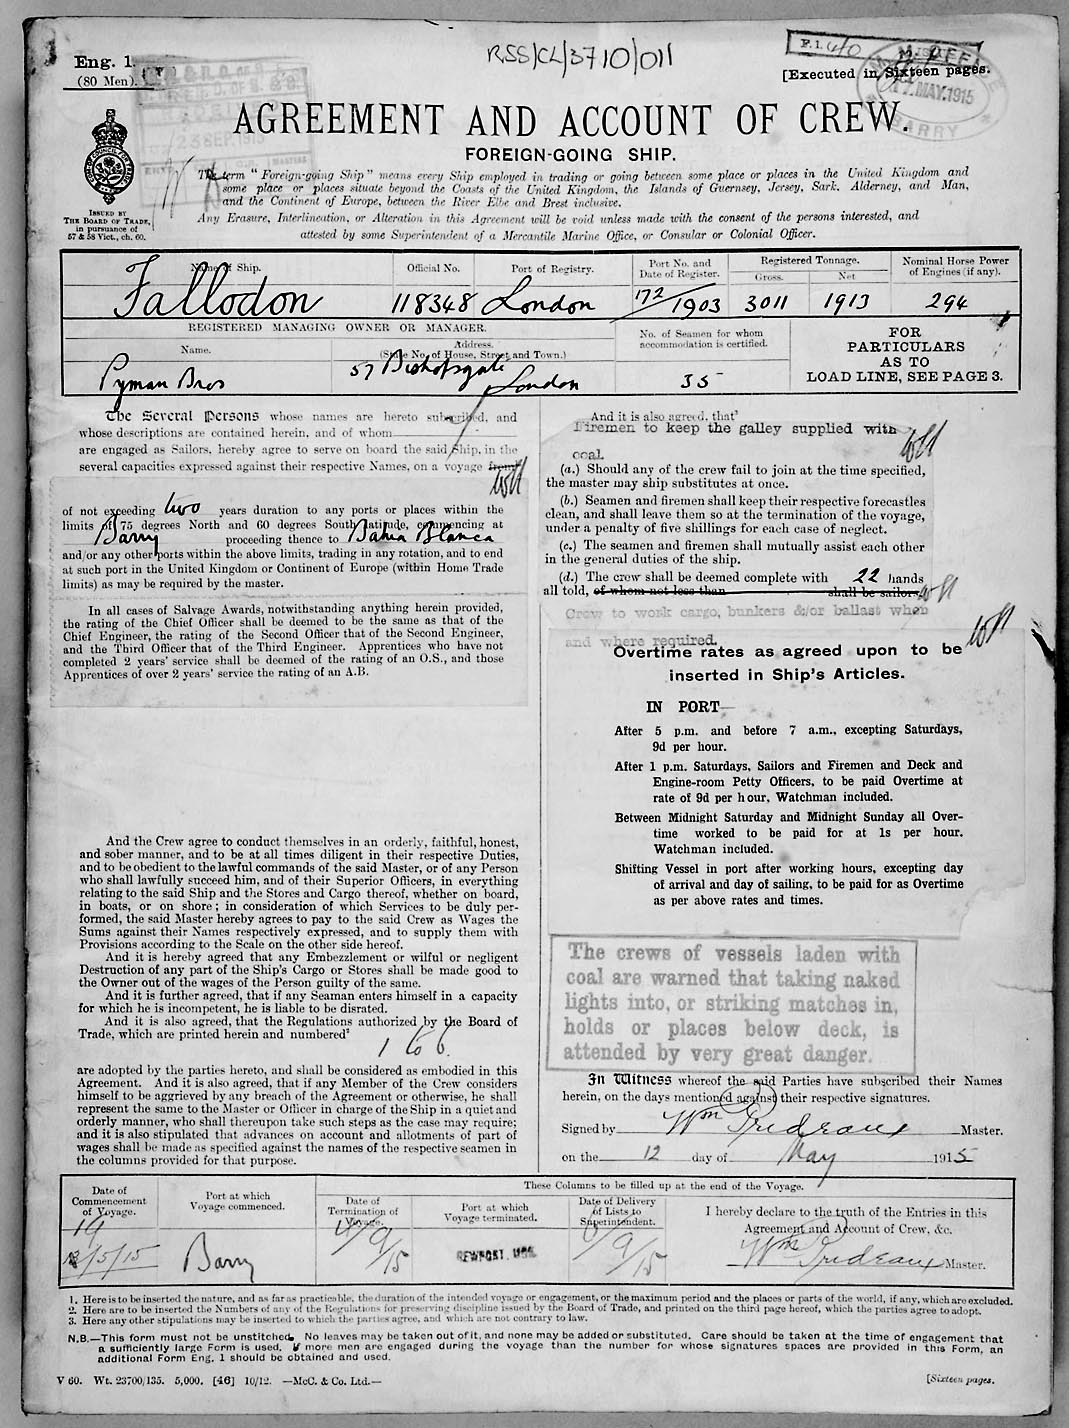 Eng. 1.
(80 Men).
RSS/CL/3710/011
F.1.
[Executed in Sixteen pages.
17 MAY.1915
BARRY
23 SEP. 1915
AGREEMENT AND ACCOUNT OF CREW.
FOREIGN-GOING SHIP.
ISSUED BY
THE BOARD OF TRADE,
in pursuance of
57 & 58 Vict., ch. 60.
The term "Foreign-going Ship" means every Ship employed in trading or going between some place or places in the United Kingdom and
some place or places situate beyond the Coasts of the United Kingdom, the Islands of Guernsey, Jersey, Sark, Alderney, and Man,
and the Continent of Europe, between the River Elbe and Brest inclusive.
Any Erasure, Interlineation, or Alteration in this Agreement will be void unless made with the consent of the persons interested, and
attested by some Superintendent of a Mercantile Marine Office, or Consular or Colonial Officer.
Name of Ship.
Official No.
Port of Registry.
Port No. and
Date of Register.
Registered Tonnage.
Gross.
Net
Nominal Horse Power
of Engines (if any).
Fallodon
118348
London
172/1903
3011
1913
294
REGISTERED MANAGING OWNER OR MANAGER.
Name.
Address.
(State No. of House, Street and Town.)
No. of Seamen for whom
accommodation is certified.
FOR
PARTICULARS
AS TO
LOAD LINE, SEE PAGE 3.
Pyman Bros
57 Bishopsgate
London
35
The Several Persons whose names are hereto subscribed, and
whose descriptions are contained herein, and of whom
are engaged as Sailors, hereby agree to serve on board the said Ship, in the
several capacities expressed against their respective Names, on a voyage from
of not exceeding two years duration to any ports or places within the
limits of 75 degrees North and 60 degrees South latitude, commencing at
Barry proceeding thence to Bahia Blanca
and/or any other ports within the above limits, trading in any rotation, and to end
at such port in the United Kingdom or Continent of Europe (within Home Trade
limits) as may be required by the master.
In all cases of Salvage Awards, notwithstanding anything herein provided,
the rating of the Chief Officer shall be deemed to be the same as that of the
Chief Engineer, the rating of the Second Officer that of the Second Engineer,
and the Third Officer that of the Third Engineer. Apprentices who have not
completed 2 years' service shall be deemed of the rating of an O.S., and those
Apprentices of over 2 years' service the rating of an A.B.
And the Crew agree to conduct themselves in an orderly, faithful, honest,
and sober manner, and to be at all times diligent in their respective Duties,
and to be obedient to the lawful commands of the said Master, or of any Person
who shall lawfully succeed him, and of their Superior Officers, in everything
relating to the said Ship and the Stores and Cargo thereof, whether on board,
in boats, or on shore; in consideration of which Services to be duly per-
formed, the said Master hereby agrees to pay to the said Crew as Wages the
Sums against their Names respectively expressed, and to supply them with
Provisions according to the Scale on the other side hereof.
And it is hereby agreed that any Embezzlement or wilful or negligent
Destruction of any part of the Ship's Cargo or Stores shall be made good to
the Owner out of the wages of the Person guilty of the same.
And it is further agreed, that if any Seaman enters himself in a capacity
for which he is incompetent, he is liable to be disrated.
And it is also agreed, that the Regulations authorized by the Board of
Trade, which are printed herein and numbered²
1 to 6.
are adopted by the parties hereto, and shall be considered as embodied in this
Agreement. And it is also agreed, that if any Member of the Crew considers
himself to be aggrieved by any breach of the Agreement or otherwise, he shall
represent the same to the Master or Officer in charge of the Ship in a quiet and
orderly manner, who shall thereupon take such steps as the case may require;
and it is also stipulated that advances on account and allotments of part of
wages shall be made as specified against the names of the respective seamen in
the columns provided for that purpose.
And it is also agreed, that³
Firemen to keep the galley supplied with
coal.
(a.) Should any of the crew fail to join at the time specified,
the master may ship substitutes at once.
(b.) Seamen and firemen shall keep their respective forecastles
clean, and shall leave them so at the termination of the voyage,
under a penalty of five shillings for each case of neglect.
(c.) The seamen and firemen shall mutually assist each other
in the general duties of the ship.
(d.) The crew shall be deemed complete with 22 hands
all told, of whom not less than shall be sailors.
Crew to work cargo, bunkers &/or ballast when
and where required.
Overtime rates as agreed upon to be
inserted in Ship's Articles.
IN PORT—
After 5 p.m. and before 7 a.m., excepting Saturdays,
9d per hour.
After 1 p.m. Saturdays, Sailors and Firemen and Deck and
Engine-room Petty Officers, to be paid Overtime at
rate of 9d per hour, Watchman included.
Between Midnight Saturday and Midnight Sunday all Over-
time worked to be paid for at 1s per hour.
Watchman included.
Shifting Vessel in port after working hours, excepting day
of arrival and day of sailing, to be paid for as Overtime
as per above rates and times.
The crews of vessels laden with
coal are warned that taking naked
lights into, or striking matches in,
holds or places below deck, is
attended by very great danger.
In Witness whereof the said Parties have subscribed their Names
herein, on the days mentioned against their respective signatures.
Signed by Wm Prideaux Master.
on the 12 day of May 1915
These Columns to be filled up at the end of the Voyage.
Date of
Commencement
of Voyage.
Port at which
Voyage commenced.
Date of
Termination of
Voyage.
Port at which
Voyage terminated.
Date of Delivery
of Lists to
Superintendent.
I hereby declare to the truth of the Entries in this
Agreement and Account of Crew, &c.
19
/5/15
Barry
4/9/15
NEWPORT, MON.
6/9/15
Wm Prideaux Master.
1. Here is to be inserted the nature, and as far as practicable, the duration of the intended voyage or engagement, or the maximum period and the places or parts of the world, if any, which are excluded.
2. Here are to be inserted the Numbers of any of the Regulations for preserving discipline issued by the Board of Trade, and printed on the third page hereof, which the parties agree to adopt.
3. Here any other stipulations may be inserted to which the parties agree, and which are not contrary to law.
N.B.—This form must not be unstitched. No leaves may be taken out of it, and none may be added or substituted. Care should be taken at the time of engagement that
a sufficiently large Form is used. If more men are engaged during the voyage than the number for whose signatures spaces are provided in this Form, an
additional Form Eng. 1 should be obtained and used.
V 60. Wt. 23700/135. 5,000. [46] 10/12. —McC. & Co. Ltd.—
[Sixteen pages.